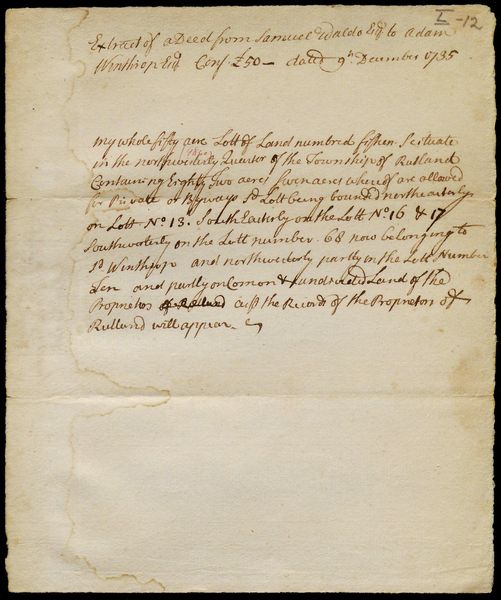 I-12
Extract of a Deed from Samuel Waldo Esqr to Adam
Winthrop Esqr Cons. £50 — dated 9th December 1735
my whole fifty acre Lott of Land numbred fifteen Scituate
in the northwesterly Quarter of the Township of Rutland
Containing Eighty Two acres Seven acres whereof are allowed
for Private or Byways sd Lott being bound northeasterly
on Lott No 13. South Easterly on the Lott No 16 & 17
Southwesterly on the Lott number. 68 now belonging to
sd Winthrop and northwesterly partly in the Lott Number
Ten and partly on Comon & undivided Land of the
Proprietors of Rutland as p the Records of the Proprietors of
Rutland will appear.